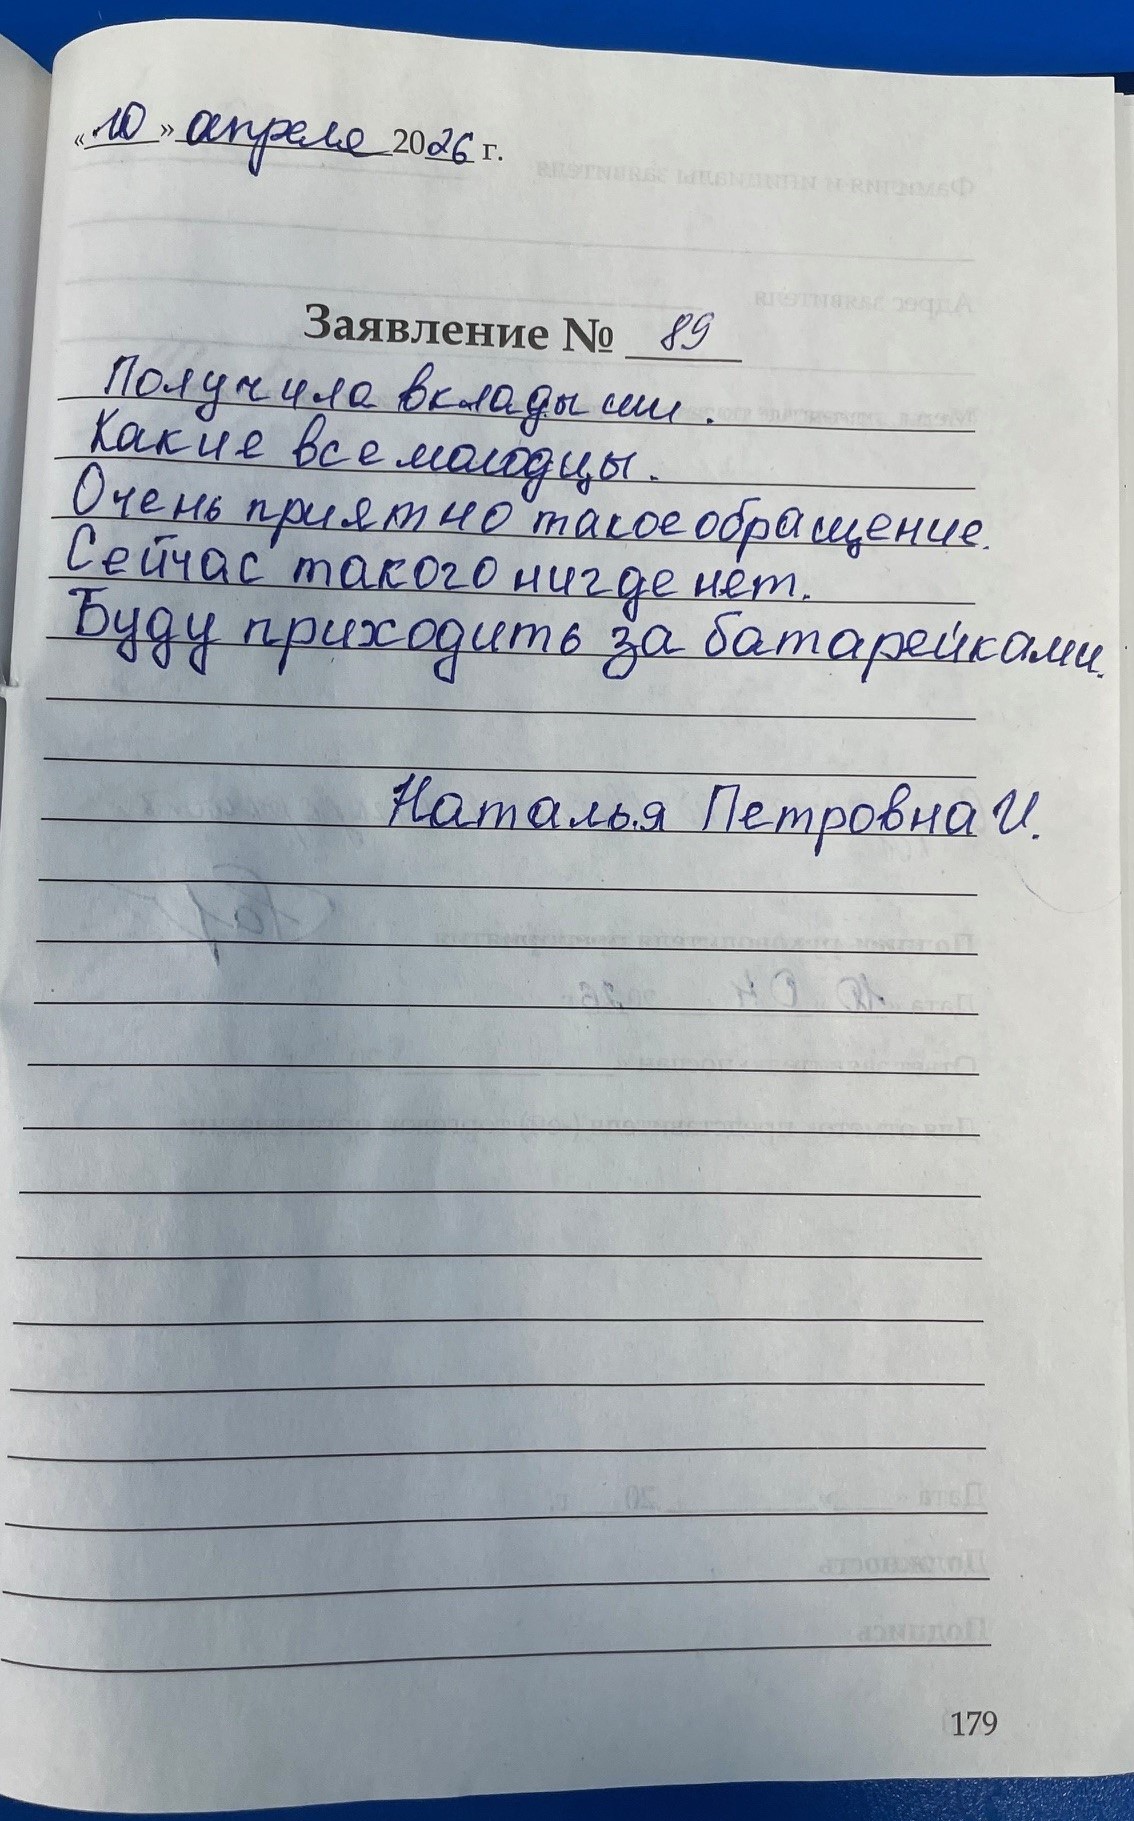 «10» апреля 2026 г.
Заявление № 89
Получила вкладыши.
Какие все молодцы.
Очень приятно такое обращение.
Сейчас такого нигде нет.
Буду приходить за батарейками.
Наталья Петровна И.
179